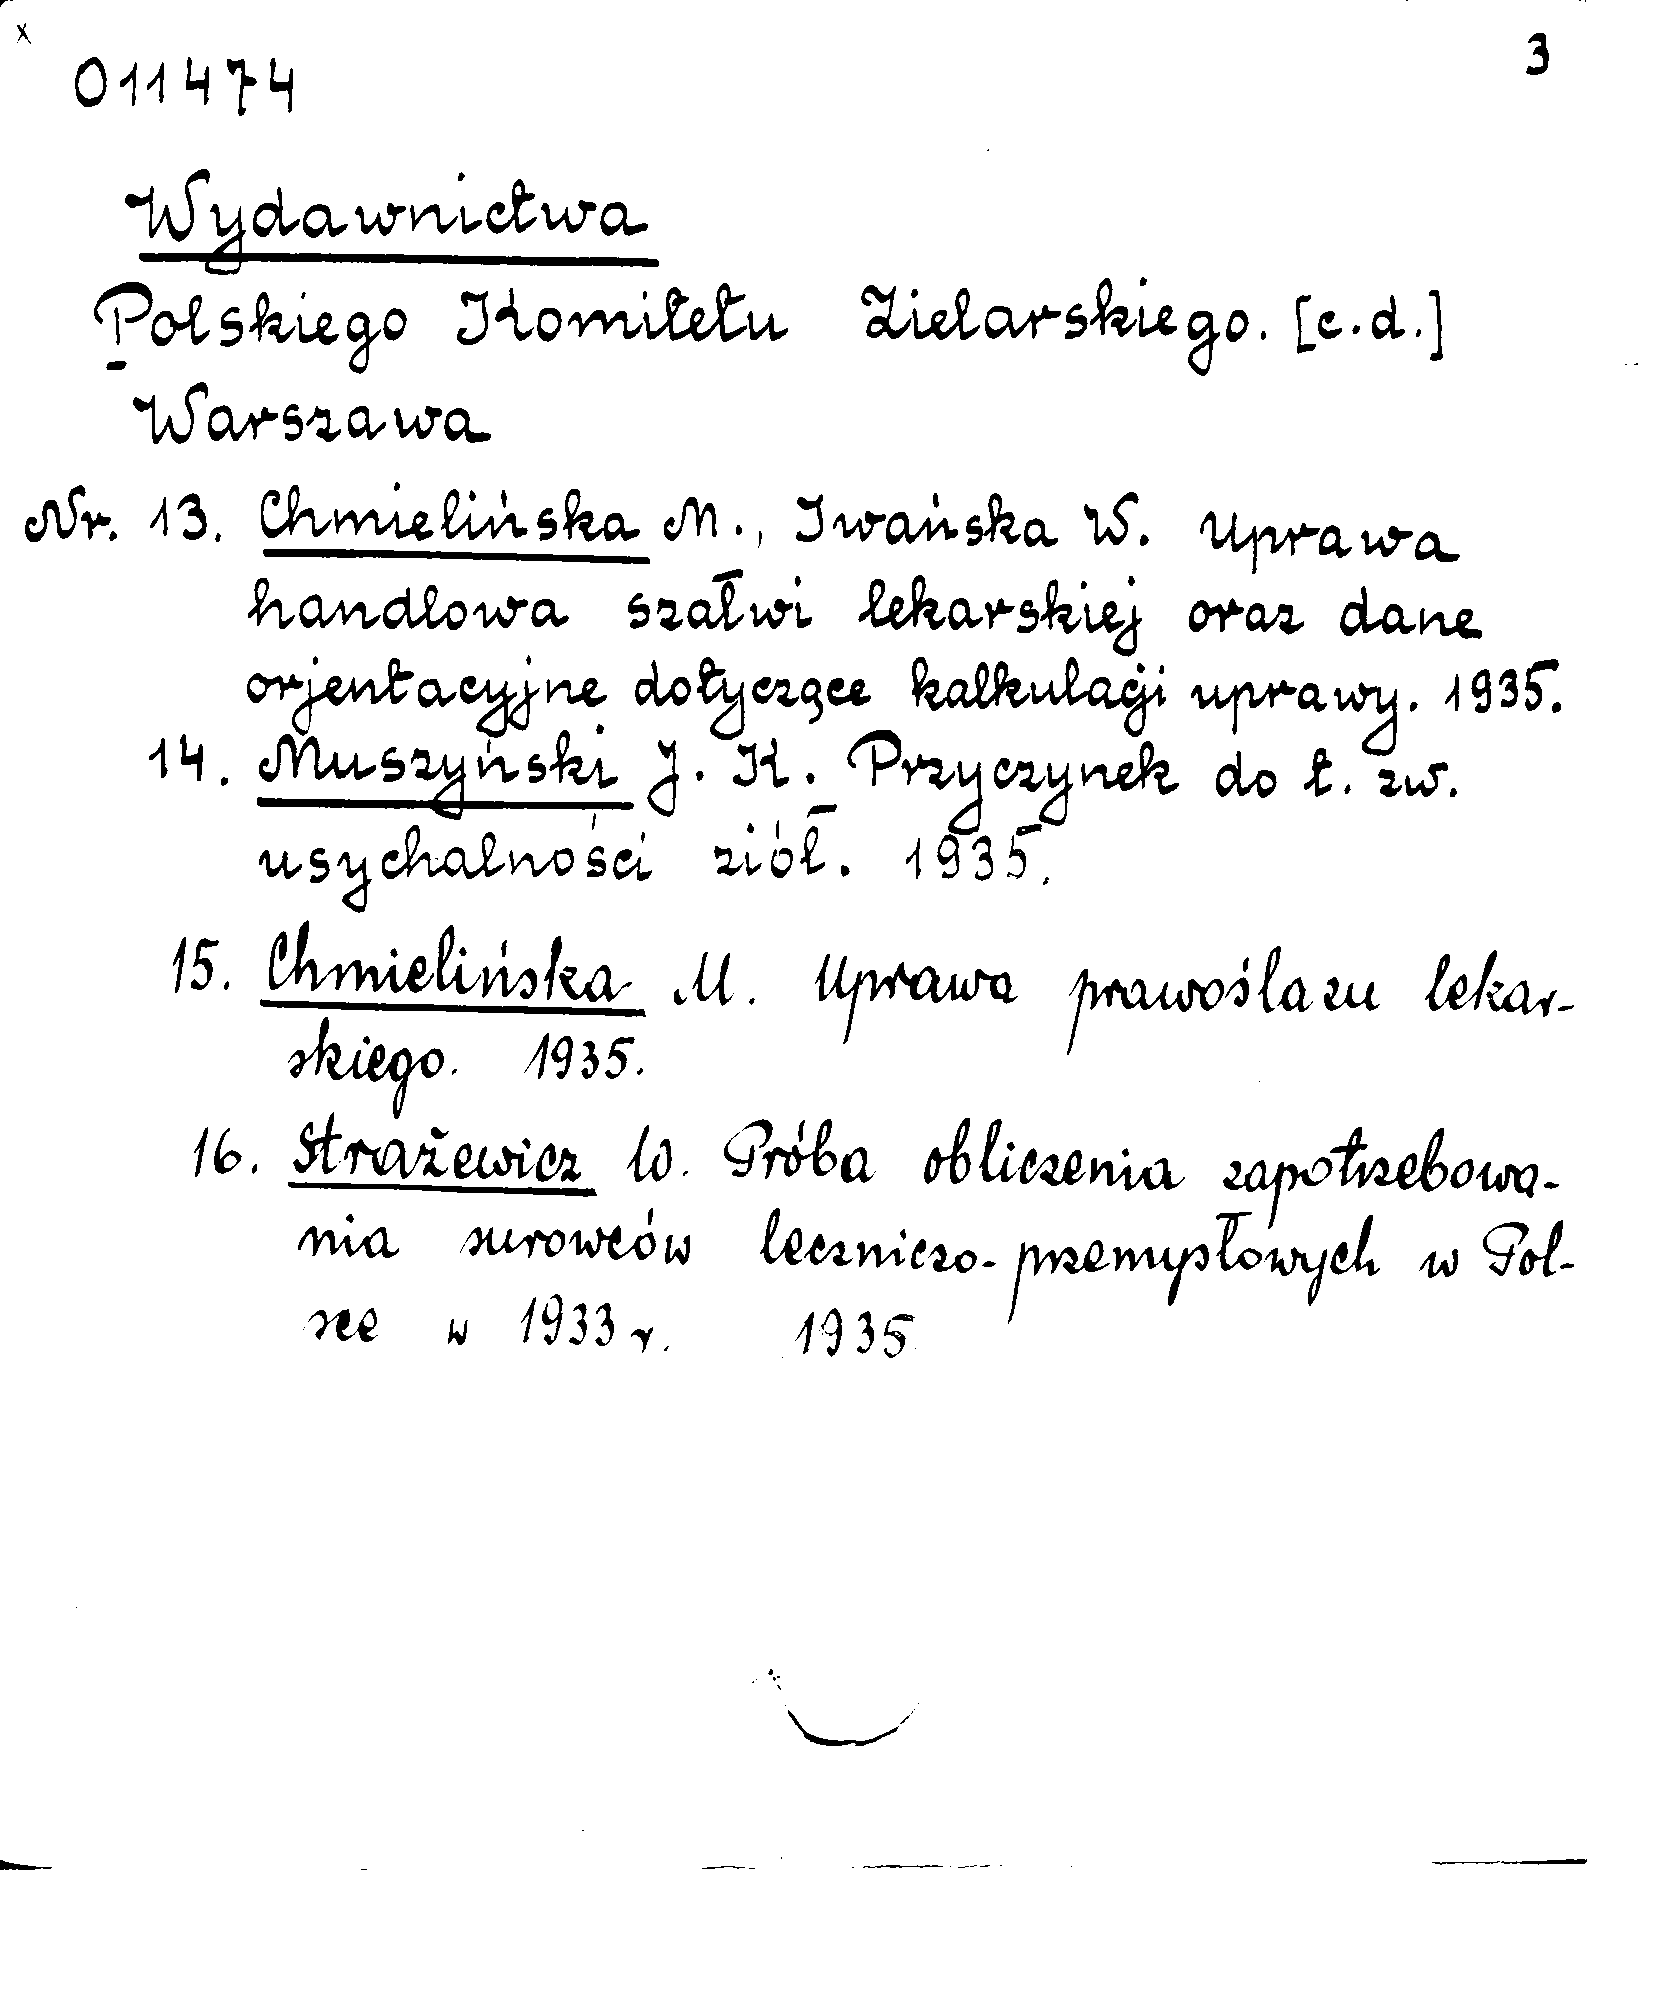 x
011474
3
Wydawnictwa
Polskiego Komitetu Zielarskiego. [c.d.]
Warszawa
Nr. 13. Chmielińska M., Iwańska W. Uprawa
handlowa szałwi lekarskiej oraz dane
orjentacyjne dotyczące kalkulacji uprawy. 1935.
14. Muszyński J. K. Przyczynek do t. zw.
usychalności ziół. 1935.
15. Chmielińska M. Uprawa prawoślazu lekar-
skiego. 1935.
16. Strażewicz W. Próba obliczenia zapotrzebowa-
nia surowców leczniczo-przemysłowych w Pol-
sce w 1933 r. 1935